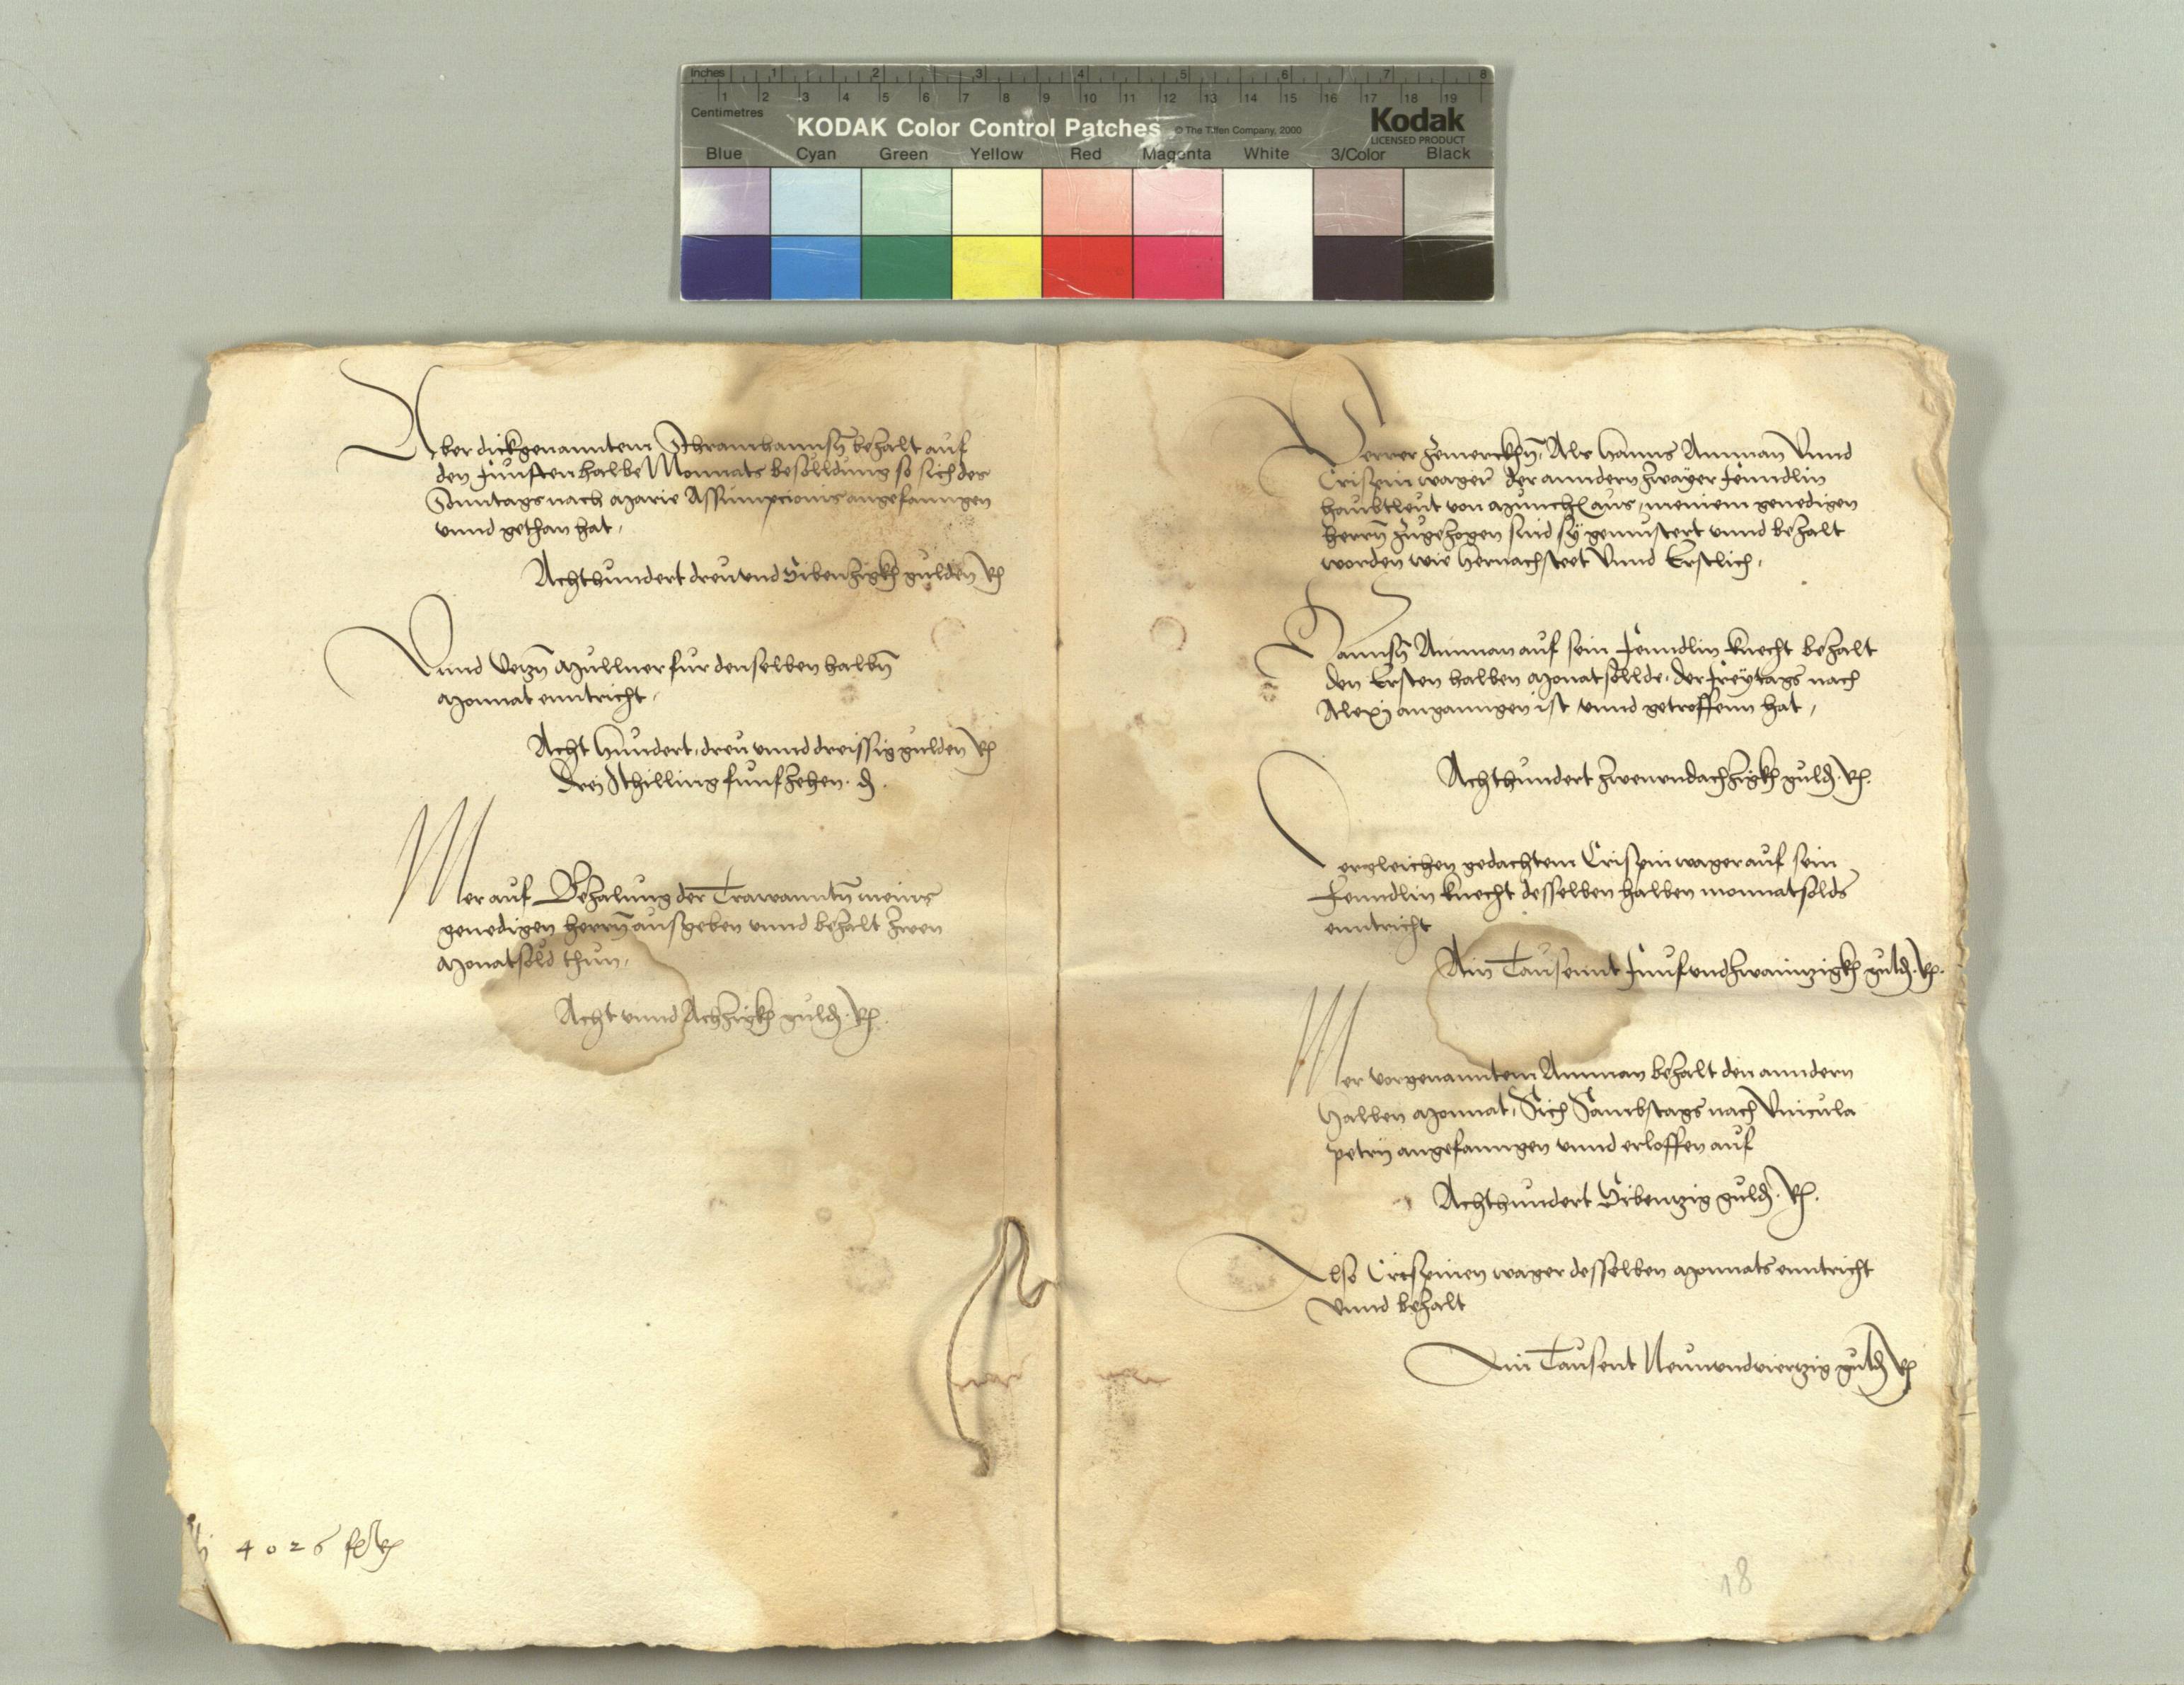 Inches 1 2 3 4 5 6 7 8
1 2 3 4 5 6 7 8 9 10 11 12 13 14 15 16 17 18 19
Centimetres
KODAK Color Control Patches © The Tiffen Company, 2000
Kodak
LICENSED PRODUCT
Blue Cyan Green Yellow Red Magenta White 3/Color Black
Aber dickgenanntem bezalt auf
den funften halbe Monnats besolldung so sich des
Sonntags nach Marie Assumpcionis angefanngen
unnd gethan hat,
Achthundert dreuundsibenzigkh gulden Rh
Vnnd Mullner fur denselben halbn̄
Monnat enntricht,
Acht hundert, dreu unnd dreissig gulden Rh
drey Schilling funfzehen. d.
Mer auf Bezalung der Trawanntn̄ meins
genedigen herrn̄ ausgeben unnd bezalt zwen
Monatsold thun,
Acht unnd Achzigkh guld. Rh.
4026 fl Rh
Verrer zemerckhn̄, Als Hanns Amman Vnnd
Crispin wager der anndern zwayer Fenndlin
haubtleut von Munchen aus, meinem genedigen
herrn̄ zugezogen sind sy gemustert unnd bezalt
worden wie hernach steet Vnnd Erstlich,
Hannsn̄ Amman auf sein Fenndlin knecht bezalt
den Ersten halben Monatsollde, der Freytags nach
Alexij anganngen ist unnd getroffenn hat,
Achthundert zwenundachzigkh guld. Rh.
Dergleichen gedachtem Crispin wager auf sein
Fenndlin knecht desselben halben monnatsolds
enntricht
Ain Tausennt Funfundzwainnzigkh guld. Rh.
Mer vorgenanntem Amman bezalt den anndern
halben Monnat, Sich Sambstags nach Vincula
petry angefanngen unnd erloffen auf
Achthundert Sibenzig guld. Rh.
Also Crispinen wager desselben Monnats enntricht
Vnnd bezalt
Ain Tausent Neunundvierzig guld Rh
18